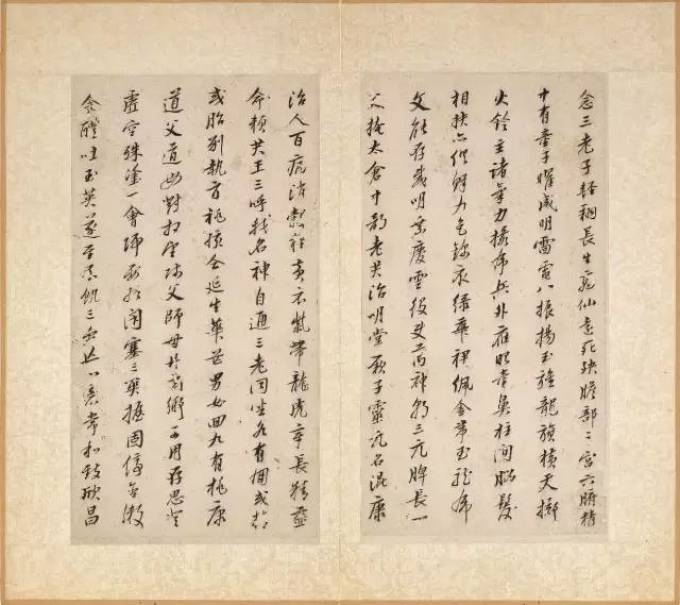 念三老子輕翔長生高仙遠死殃膽部之宮六腑精
中有童子曜威明雷電八振揚玉旌龍旗橫天擲
火鈴主諸氣力攝虎兵外應眼童鼻柱間腦髮
相扶亦俱鮮九色錦衣綠華裙佩金帶玉龍虎
文能存威明乘慶雲役使万神朝三元脾長一
尺掩太倉中部老君治明堂厥字靈元名混康
治人百病消穀糧黃衣紫帶龍虎章長精益
命賴君王三呼我名神自通三老同坐各有朋或精
或胎別執方桃孩合延生華芒男女回九有桃康
道父道母對相望師父師母丹玄鄉可用存思登
虛空殊塗一會歸要終閉塞三關握固停含漱
金醴吞玉英遂至不飢三虫亡心意常和致欣昌